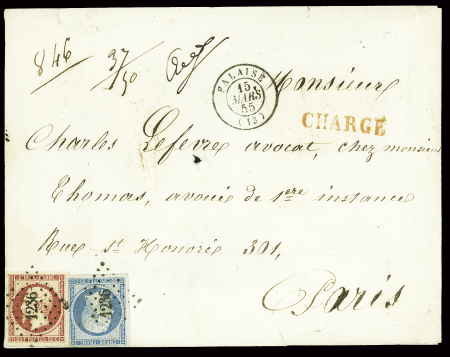 846 37/50
FALAISE
15
MARS
55
(13)
Monsieur
CHARGÉ
Charles Lefevre avocat, chez monsieur
Thomas, avoué de 1ère instance
Rue St Honoré 301,
Paris
1236 1236